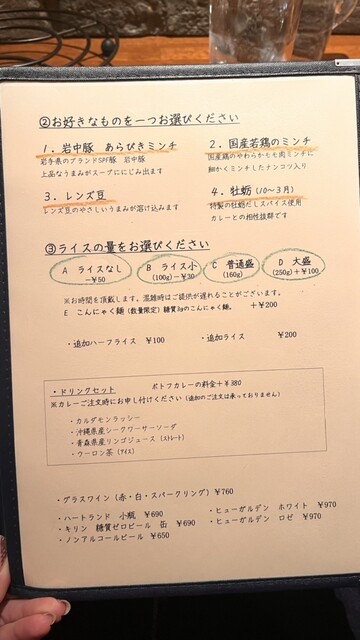 ②お好きなものを一つお選びください
1. 岩中豚 あらびきミンチ
岩手県のブランドSPF豚 岩中豚
上品なうまみがスープににじみ出ます
2. 国産若鶏のミンチ
国産鶏のやわらかモモ肉ミンチに
細かくミンチしたナンコツ入り
3. レンズ豆
レンズ豆のやさしいうまみが溶け込みます
4. 牡蛎(10〜3月)
特製の牡蛎だしスパイス使用
カレーとの相性抜群です
③ライスの量をお選びください
A ライスなし
−¥50
B ライス小
(100g)−¥30
C 普通盛
(160g)
D 大盛
(250g)+¥100
※お時間を頂戴します。混雑時はご提供が遅れることがございます。
E こんにゃく麺(数量限定)糖質3gのこんにゃく麺。 +¥200
・追加ハーフライス ¥100
・追加ライス ¥200
・ドリンクセット ポトフカレーの料金+¥380
※カレーご注文時にお申し付けください(追加のご注文は承っておりません)
・カルダモンラッシー
・沖縄県産シークワーサーソーダ
・青森県産リンゴジュース(ストレート)
・ウーロン茶(アイス)
・グラスワイン(赤・白・スパークリング)¥760
・ハートランド 小瓶 ¥690
・キリン 糖質ゼロビール 缶 ¥690
・ノンアルコールビール ¥650
・ヒューガルデン ホワイト ¥970
・ヒューガルデン ロゼ ¥970